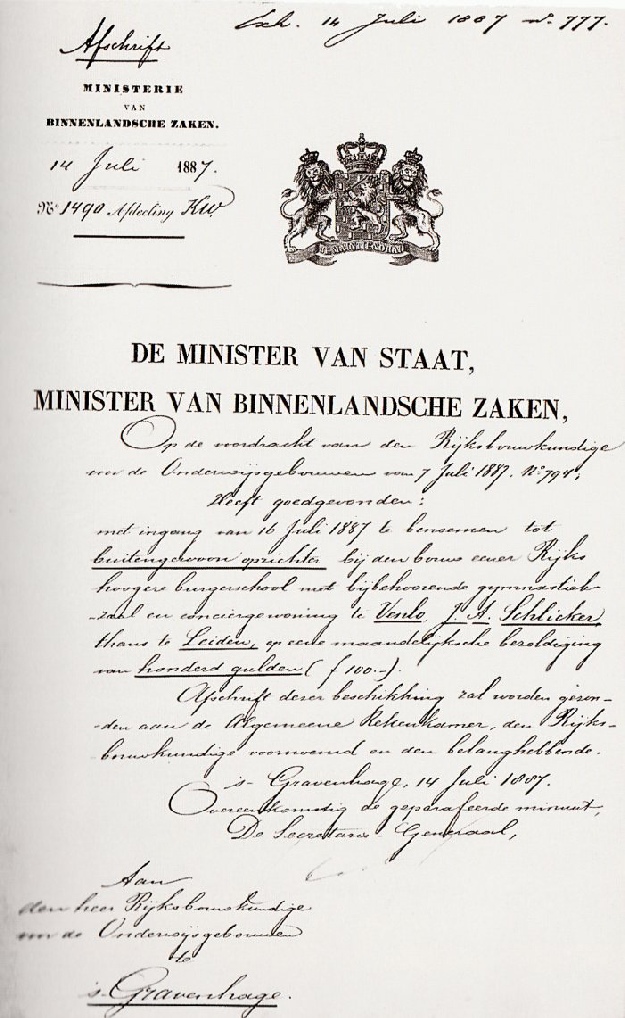 Exh. 14 Juli 1887 No. 777.
Afschrift
MINISTERIE
VAN
BINNENLANDSCHE ZAKEN.
14 Juli 1887.
No 1490 Afdeeling KW.
JE MAINTIENDRAI
DE MINISTER VAN STAAT,
MINISTER VAN BINNENLANDSCHE ZAKEN,
Op de voordracht van den Rijksbouwkundige
voor de Onderwijsgebouwen van 7 Juli 1887. No 794;
Heeft goedgevonden:
met ingang van 16 Juli 1887 te benoemen tot
buitengewoon opzichter bij den bouw eener Rijks
hoogere burgerschool met bijbehoorende gymnastiek-
zaal en conciergewoning te Venlo, J. A. Schlicker,
thans te Leiden, op eene maandelijksche bezoldiging
van honderd gulden (f 100-).
Afschrift dezer beschikking zal worden gezon-
den aan de Algemeene Rekenkamer, den Rijks-
bouwkundige voornoemd en den belanghebbende.
's Gravenhage, 14 Juli 1887.
Overeenkomstig de geparafeerde minuut,
De Secretaris Generaal,
Aan
den heer Rijksbouwkundige
voor de Onderwijsgebouwen
te
's Gravenhage.